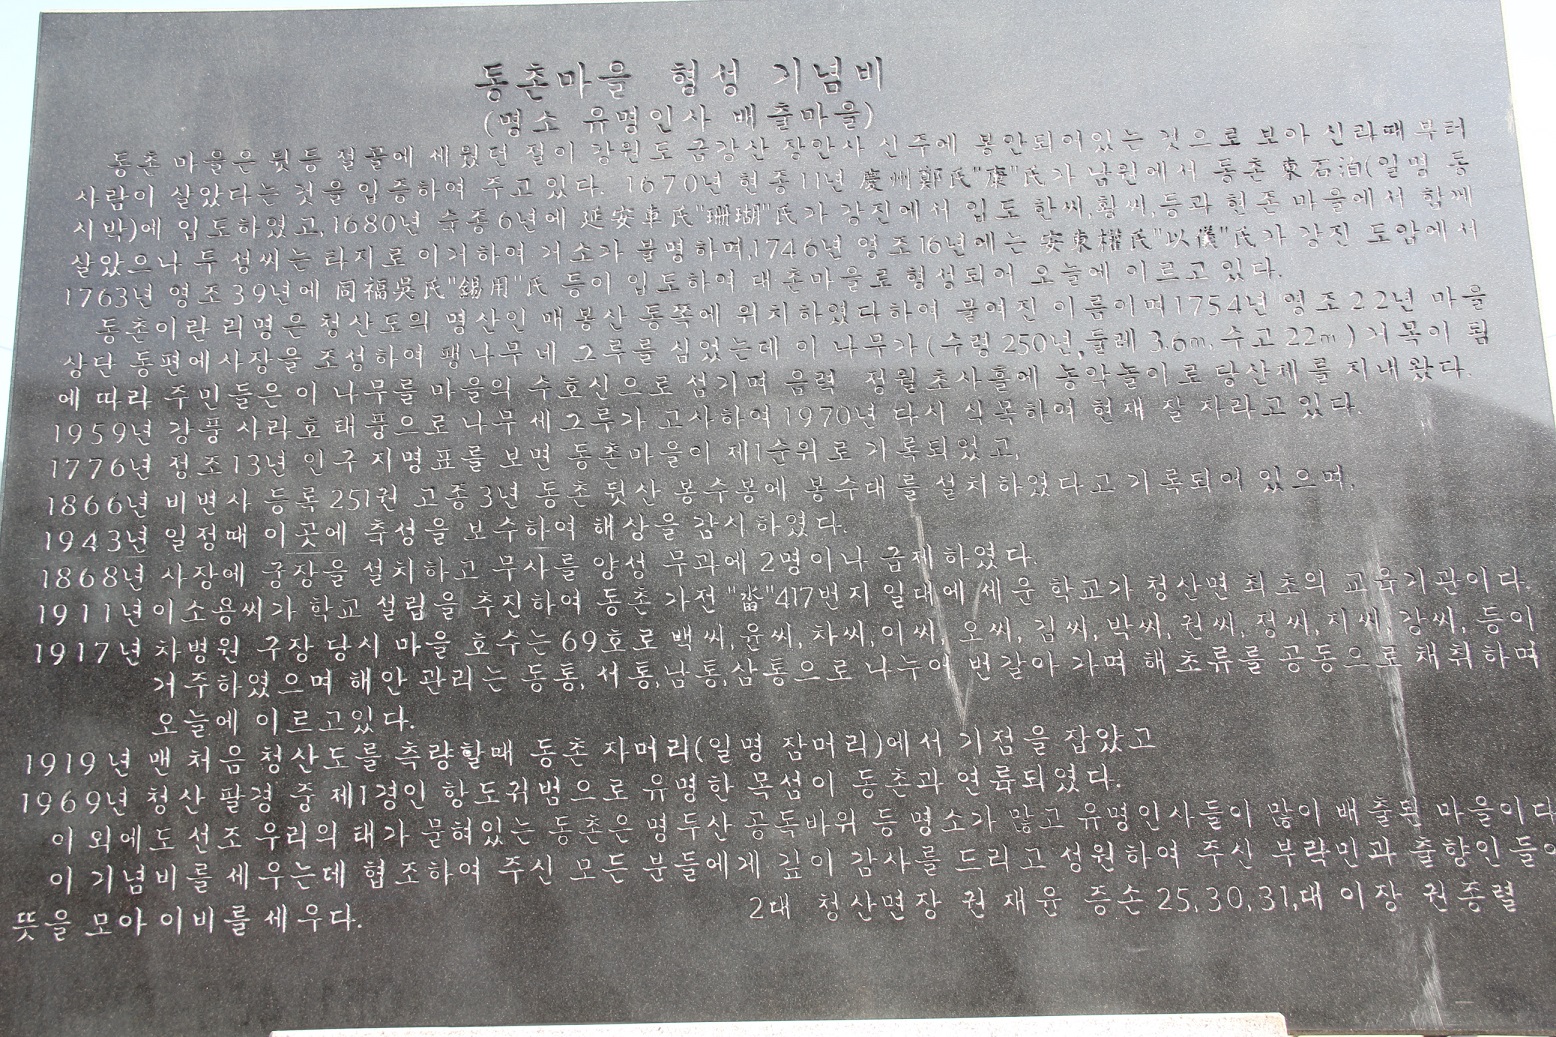 동촌마을 형성 기념비
(명소 유명인사 배출마을)
동촌 마을은 뒷등 절꼴에 세웠던 절이 강원도 금강산 장안사 신주에 봉안되어있는 것으로 보아 신라때 부터
사람이 살았다는 것을 입증하여 주고 있다. 1670년 현종11년 慶州鄭氏"康"氏가 남원에서 동촌 東石泊(일명 동
시박)에 입도하였고,1680년 숙종6년에 延安車氏"珊瑚"氏가 강진에서 입도 한씨,황씨,등과 현존 마을에서 함께
살았으나 두 성씨는 타지로 이거하여 거소가 불명하며,1746년 영조16년에는 安東權氏"以漢"氏가 강진 도암에서
1763년 영조39년에 同福吳氏"錫用"氏 등이 입도하여 대촌마을로 형성되어 오늘에 이르고 있다.
동촌이란 리명은 청산도의 명산인 매봉산 동쪽에 위치하였다하여 붙여진 이름이며1754년 영조22년 마을
상단 동편에사장을 조성하여 팽나무 네 그루를 심었는데 이 나무가(수령 250년,둘레 3.6m, 수고 22m)거목이 됨
에 따라 주민들은 이 나무를 마을의 수호신으로 섬기며 음력 정월초사흘에 농악놀이로 당산제를 지내왔다.
1959년 강풍 사라호 태풍으로 나무 세그루가 고사하여 1970년 다시 식목하여 현재 잘 자라고 있다.
1776년 정조13년 인구 지명표를 보면 동촌마을이 제1순위로 기록되었고,
1866년 비변사 등록 251권 고종3년 동촌 뒷산 봉수봉에 봉수대를 설치하였다고 기록되어 있으며,
1943년 일정때 이곳에 축성을 보수하여 해상을 감시하였다.
1868년 사장에 궁장을 설치하고 무사를 양성 무과에 2명이나 급제하였다.
1911년이소용씨가 학교 설립을 추진하여 동촌 가전 "畓"417번지 일대에 세운 학교가 청산면 최초의 교육기관이다.
1917년 차병원 구장 당시 마을 호수는 69호로 백씨,윤씨,차씨,이씨,오씨,김씨,박씨,권씨,정씨,지씨,강씨,등이
거주하였으며 해안 관리는 동통,서통,남통,삼통으로 나누어 번갈아 가며 해초류를 공동으로 채취하며
오늘에 이르고있다.
1919년 맨 처음 청산도를 측량할때 동촌 자머리(일명 잠머리)에서 기점을 잡았고
1969년 청산 팔경 중 제1경인 항도귀범으로 유명한 목섬이 동촌과 연륙되었다.
이 외에도 선조 우리의 태가 묻혀있는 동촌은 명두산 공독바위 등 명소가 많고 유명인사들이 많이 배출된 마을이다
이 기념비를 세우는데 협조하여 주신 모든 분들에게 깊이 감사를 드리고 성원하여 주신 부락민과 출향인들이
뜻을 모아 이비를 세우다.
2대 청산면장 권재윤 증손 25,30,31,대 이장 권종렬